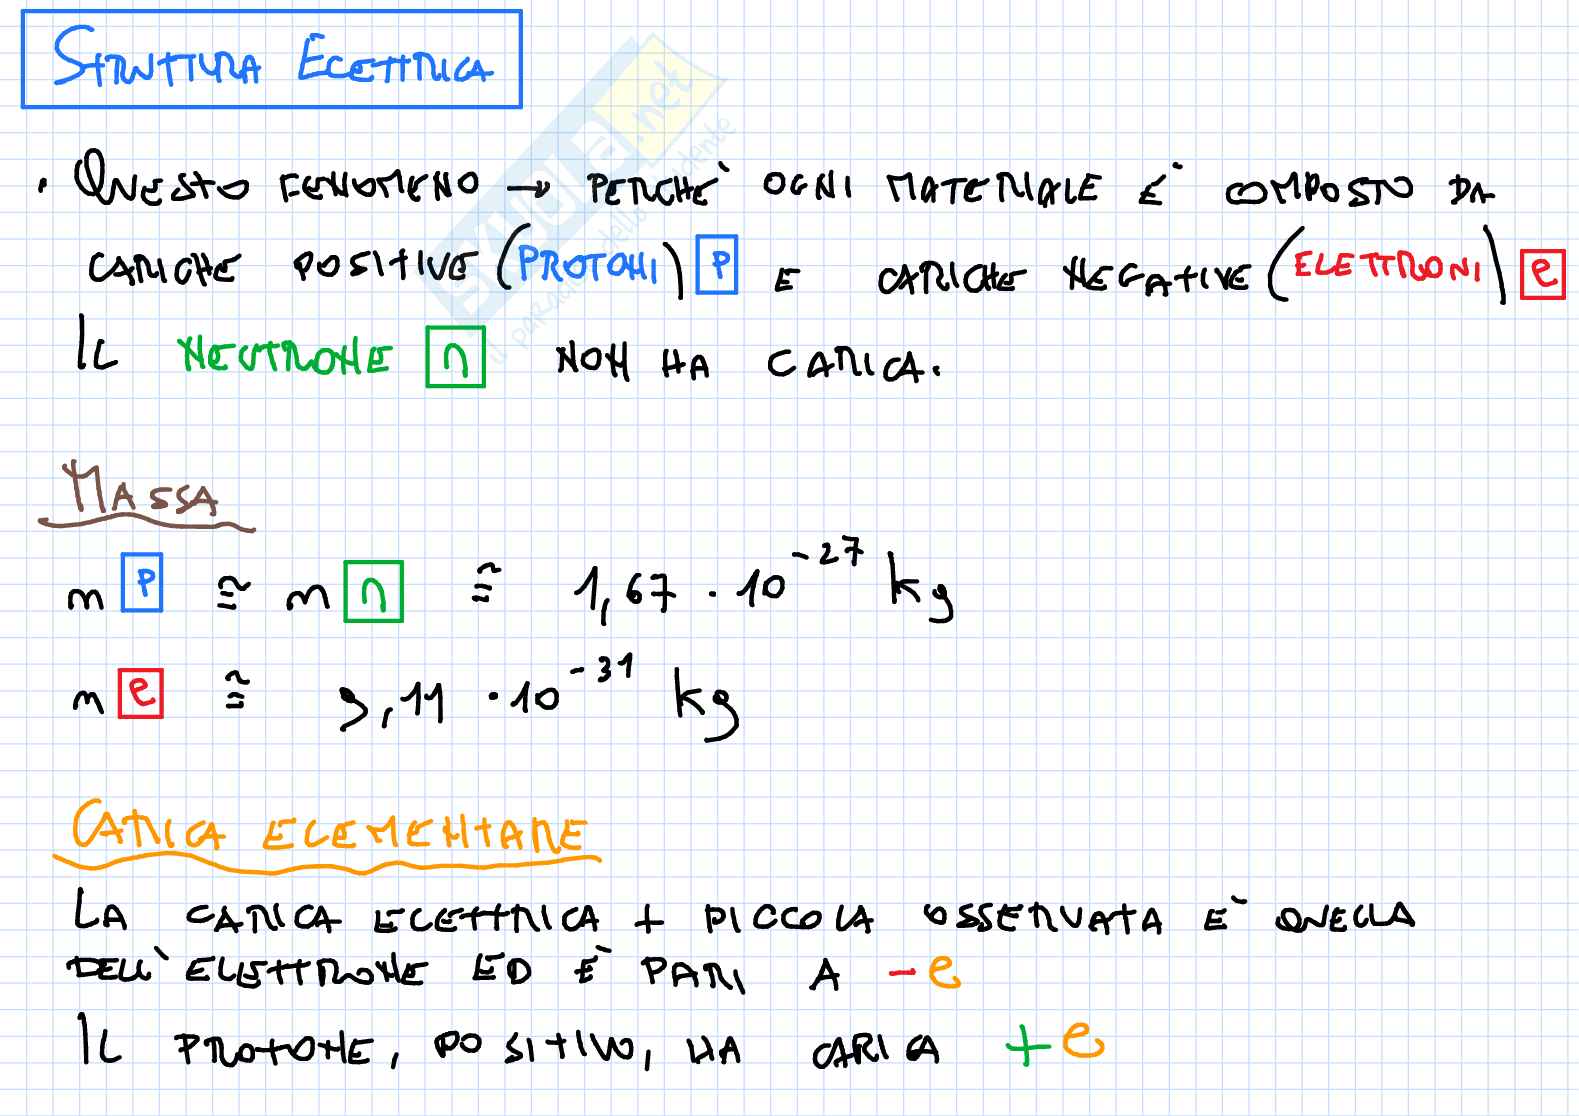 STRUTTURA ELETTRICA
· QUESTO FENOMENO → PERCHÈ OGNI MATERIALE È COMPOSTO DA
CARICHE POSITIVE (PROTONI) P E CARICHE NEGATIVE (ELETTRONI) e
IL NEUTRONE n NON HA CARICA.
MASSA
m P ≅ m n ≅ 1,67 · 10⁻²⁷ kg
m e ≅ 9,11 · 10⁻³¹ kg
CARICA ELEMENTARE
LA CARICA ELETTRICA + PICCOLA OSSERVATA È QUELLA
DELL'ELETTRONE ED È PARI A -e
IL PROTONE, POSITIVO, HA CARICA +e
skuola.net
il paradiso dello studente